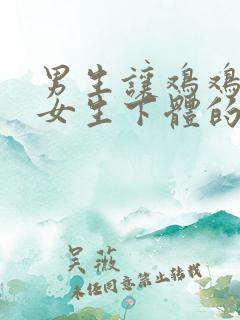 男生讓鸡鸡
女生下體的
吴薇
未经同意禁止转载